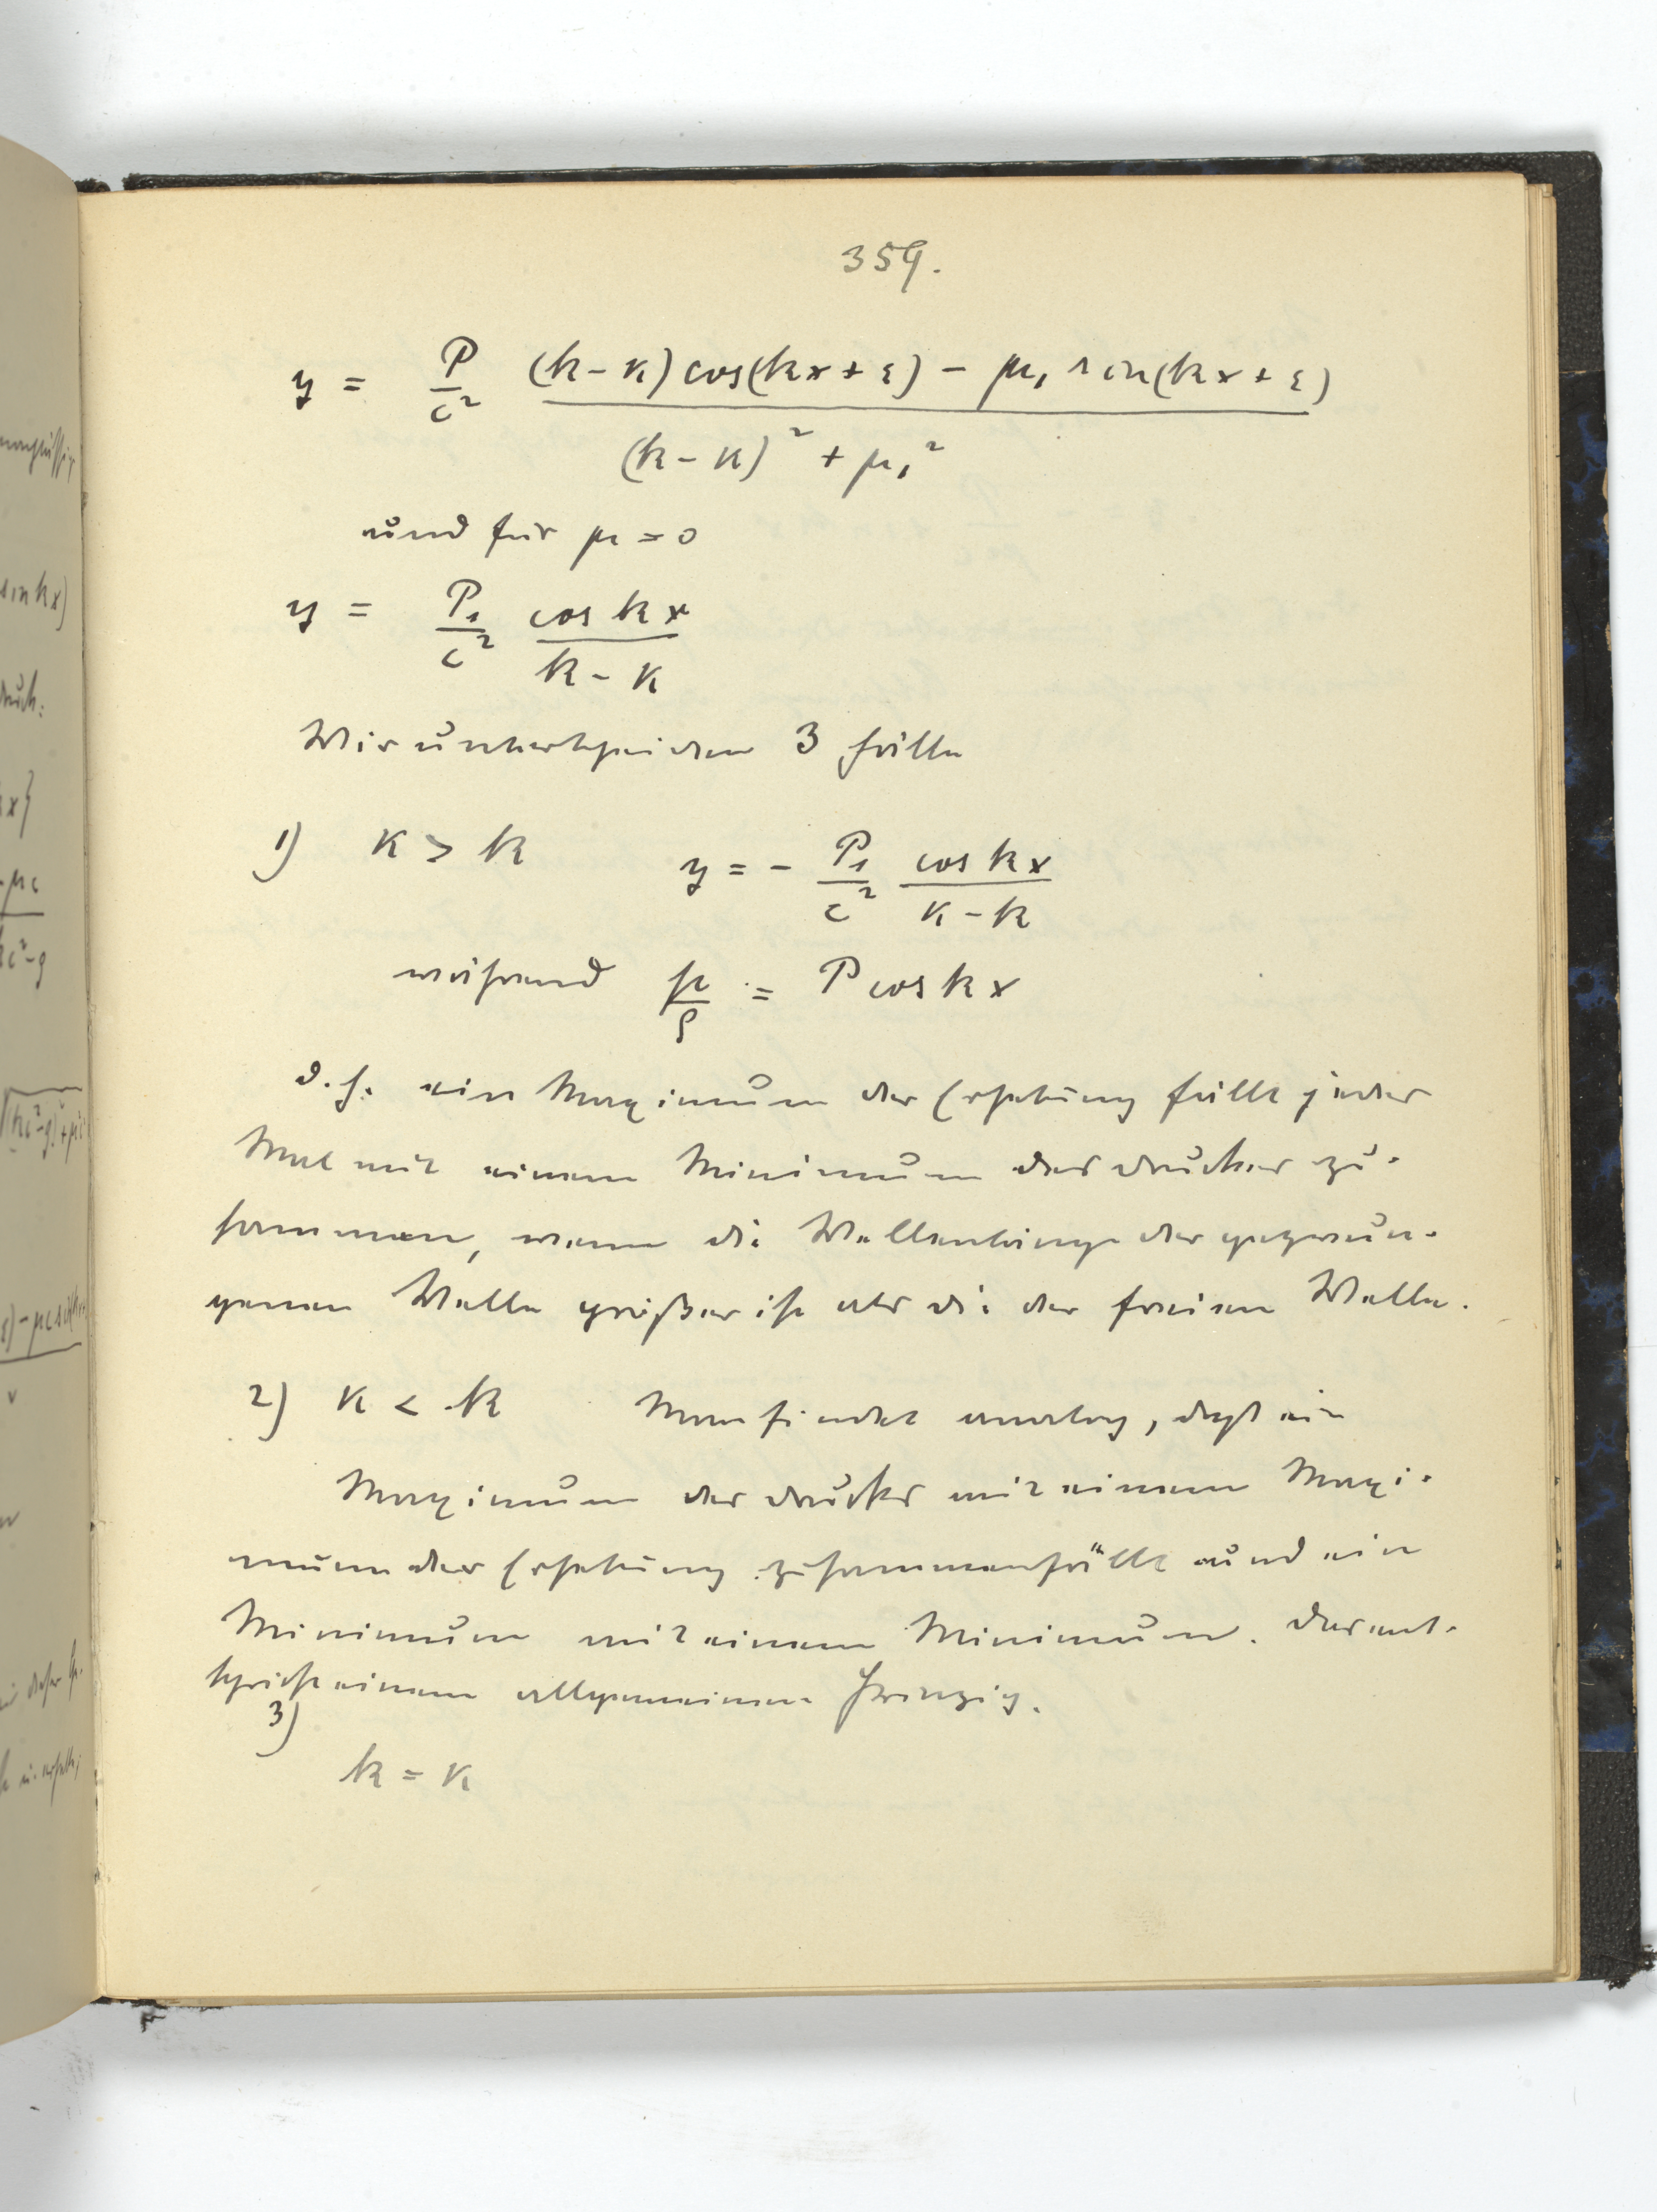 359.
y = P/c² ((k-κ) cos(kx+ε) - μ₁ sin(kx+ε))/((k-κ)² + μ₁²)
und für μ = 0
y = P₁/c² cos kx/(k-κ)
Wir unterscheiden 3 Fälle
1) κ > k y = - P₁/c² cos kx/(κ-k)
während p/ρ = P cos kx
d. h. ein Maximum der Erhebung fällt jedes
Mal mit einem Minimum des Druckes zu-
sammen, wenn die Wellenlänge der gezwun-
genen Welle größer ist als die der freien Welle.
2) κ < k Man findet analog, daß ein
Maximum des Druckes mit einem Maxi-
mum der Erhebung zusammenfällt und ein
Minimum mit einem Minimum. Das ent-
spricht einem allgemeinen Prinzip.
3)
k = κ
sin kx)